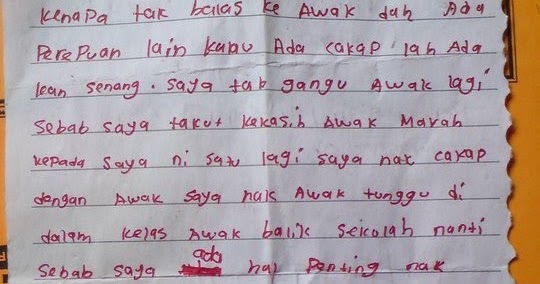 kenapa tak balas ke Awak dah Ada
PerePuan lain kalau Ada cakap lah Ada
kan senang. saya tab gangu Awak lagi
sebab saya takut kekasih Awak Marah
kepada saya ni satu lagi saya nak cakap
dengan Awak saya nak Awak tunggu di
dalam kelas Awak balik sekolah nanti
sebab saya ada hal Penting nak